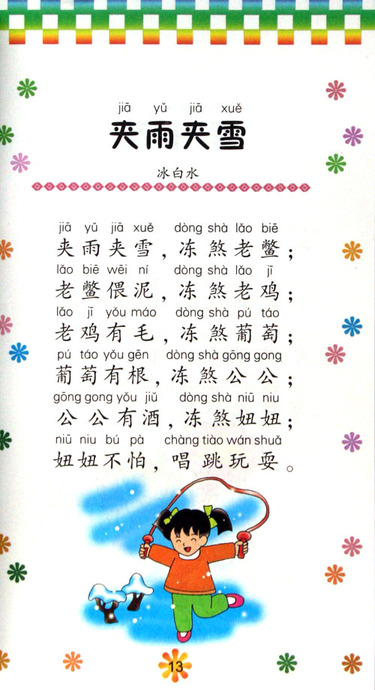 jiā yǔ jiā xuě
夹雨夹雪
冰白水
jiā yǔ jiā xuě dòng shà lǎo biē
夹雨夹雪，冻煞老鳖；
lǎo biē wēi ní dòng shà lǎo jī
老鳖偎泥，冻煞老鸡；
lǎo jī yǒu máo dòng shà pú táo
老鸡有毛，冻煞葡萄；
pú táo yǒu gēn dòng shà gōng gong
葡萄有根，冻煞公公；
gōng gong yǒu jiǔ dòng shà niū niu
公公有酒，冻煞妞妞；
niū niu bú pà chàng tiào wán shuǎ
妞妞不怕，唱跳玩耍。
13